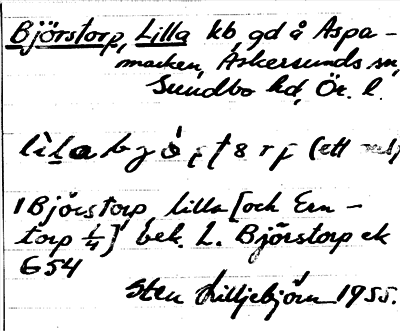 Björstorp, Lilla kb, gd å Aspa-
marken, Askersunds sn,
Sundbo hd, Ör. l.
(ett
1 Björstorp, Lilla [och Ern-
torp 1/4] bek. L. Björstorp ek
654
Sten Lilljebjörn 1955.